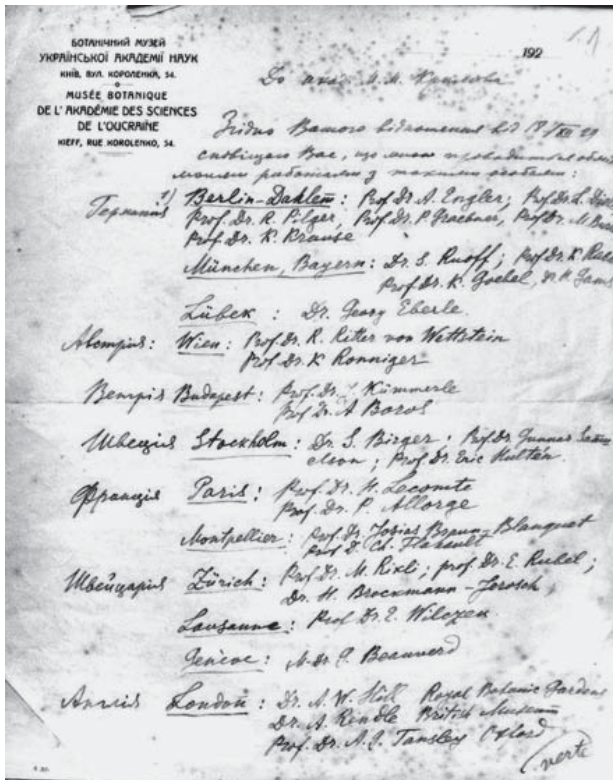 БОТАНІЧНИЙ МУЗЕЙ
УКРАЇНСЬКОЇ АКАДЕМІЇ НАУК
КИЇВ, ВУЛ. КОРОЛЕНКА, 54.
MUSÉE BOTANIQUE
DE L'ACADÉMIE DES SCIENCES
DE L'OUCRAÏNE
KIEFF, RUE KOROLENKO, 54.
192
До акад. М. М.
Згідно Вашого відношення від XII 29
сповіщаю Вас, що мною провадиться обмін
моїми работами з такими особами:
1) Berlin-Dahlem: Prof. Dr. A. Engler; Prof. Dr. L.
Германія Prof. Dr. R. Pilger, Prof. Dr. P. Graebner, Prof. Dr. M.
Prof. Dr. K. Krause
München, Bayern: Dr. S. Ruoff; Prof. Dr. K.
Prof. Dr. K. Goebel, Dr. H. Gams
Lübek: Dr. Georg Eberle.
Австрия: Wien: Prof. Dr. R. Ritter von Wettstein
Prof. Dr. K Ronniger
Венгрія Budapest: Prof. Dr. J. Kümmerle
Prof. Dr. A Boros
Швеція Stockholm: Dr. S. Birger; Prof. Dr. Gunnar Samu
elson; Prof. Dr. Eric Hulten.
Франція Paris: Prof. Dr. H. Lecomte
Prof. Dr. P. Allorge
Montpellier: Prof. Dr. Josias Braun-Blanquet
Prof. D. Ch. Flahault
Швейцария Zürich: Prof. Dr. M. Rikli; prof. Dr. E. Rubel;
Dr. H. Brockmann-Jerosch,
Lausanne: Prof Dr. E. Wilczek
Geneve: M. Dr. G. Beauverd
Англія London: Dr. A. W. Hill Royal Botanic Gardens
Dr. A. Rendle British Museum
Prof. Dr. A. G. Tansley Oxford
verte